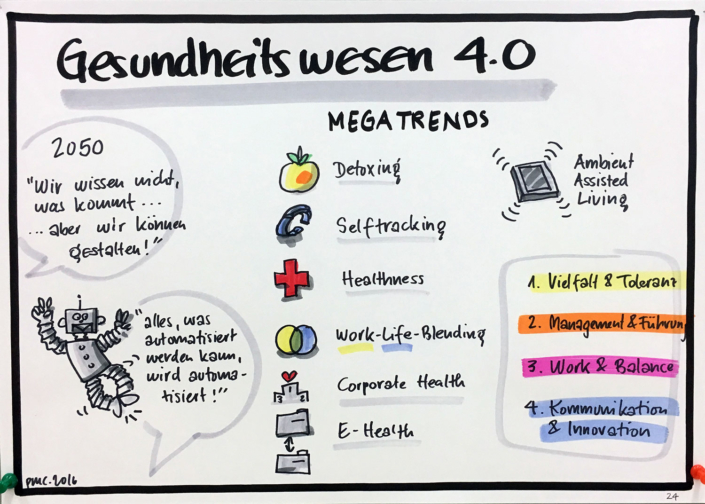 Gesundheitswesen 4.0
MEGATRENDS
2050
"Wir wissen nicht,
was kommt...
... aber wir können
gestalten!"
"alles, was
automatisiert
werden kann,
wird automa-
tisiert!"
Detoxing
Selftracking
Healthness
Work-Life-Blending
2 1 3
Corporate Health
E-Health
Ambient
Assisted
Living
1. Vielfalt & Toleranz
2. Management & Führung
3. Work & Balance
4. Kommunikation
& Innovation
pmc.2016
24